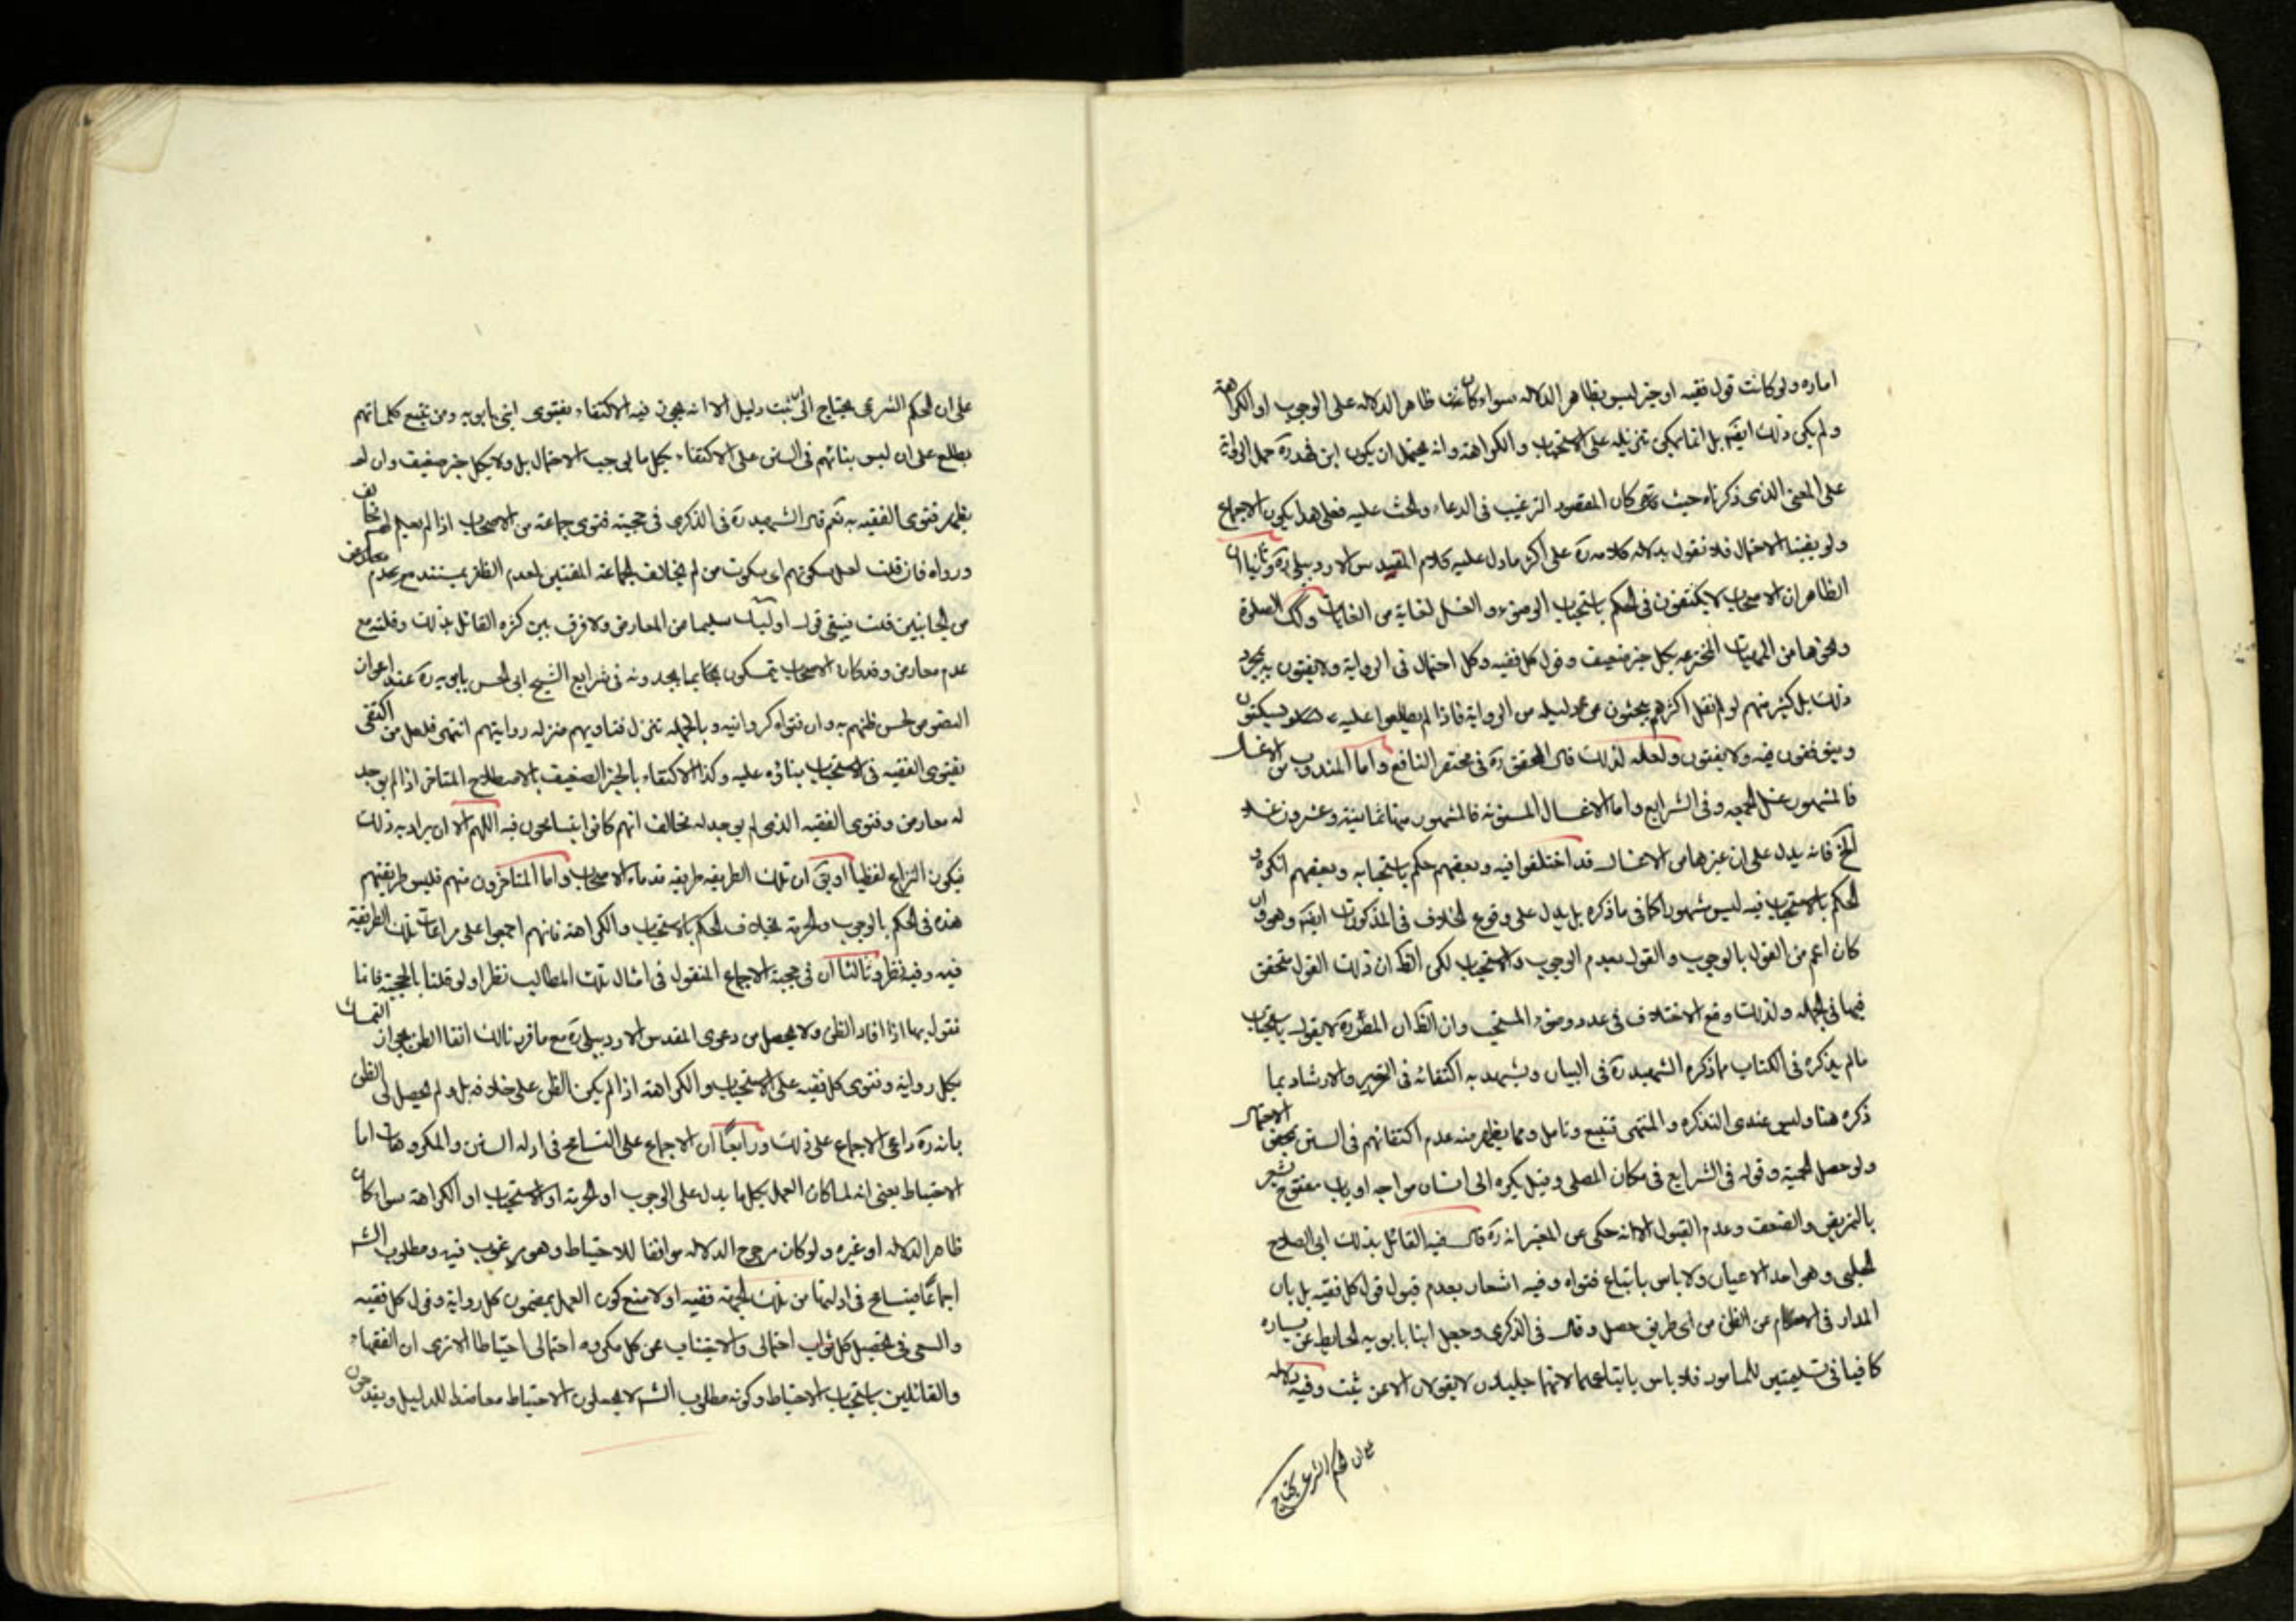 اماره ولو كانت قول فقيه او خبر ليس بظاهر الدلاله سواء كانت ظاهر الدلاله على الوجوب او الكراهة
ولم يكن ذلك ايضا بل انما يمكن تنزيله على الاستحباب والكراهة وانه يحتمل ان يكون ابن فهد ره حمل الرواية
على المعنى الذى ذكرناه حيث كان المقصود الترغيب فى الدعاء والحث عليه فعلى هذا يكون الاجماع
ولو بقيت الاحتمال فلا نقول بدلاله كلامه ره على اكثر ما دل عليه كلام المقدس الاردبيلى ره وثانيا ان
الظاهر ان الاصحاب لا يكتفون فى الحكم باستحباب الوضوء والغسل لغاية من الغايات وكك الصلوة
ونحوها من المهيات المخترعه بكل خبر ضعيف وقول كل فقيه وكل احتمال فى الرواية ولا يفتون به بمجرد
ذلك بل كثير منهم لو لم نقل اكثرهم يبحثون عن دليله من الرواية فاذا لم يطلعوا عليه يسكتون
ويتوقفون فيه ولا يفتون ولعله لذلك قال المحقق ره فى مختصر النافع واما المندوب من الاغسال
فالمشهور غسل الجمعه وفى الشرايع واما الاغسال المسنونة فالمشهور منها ثمانية وعشرون غسلا
الخ فانه يدل على ان غيرها من الاغسال قد اختلفوا فيه وبعضهم حكم باستحبابه وبعضهم انكره و
الحكم بالاستحباب فيه ليس مشهورا كما فى ما ذكره بل يدل على وقوع الخلاف فى المذكورات ايضا وهو وان
كان اعم من القول بالوجوب والقول بعدم الوجوب والاستحباب لكن الظ ان ذلك القول متحقق
فيها فى الجمله ولذلك وقع الاختلاف فى عدد وضوء المستحب وان الظ ان المط ره لا يقول باستحباب
ما لم يذكره فى الكتاب مما ذكره الشهيد ره فى البيان ويشهد به اكتفائه فى التحرير والارشاد بما
ذكره هنا وليس عندى التذكره والمنتهى فتتبع وتامل ومما يظهر منه عدم اكتفائهم فى السنن بمحض الاحتمال
ولو حصل الحمية وقوله فى الشرايع فى مكان المصلى وقيل يكره الى انسان مواجه او باب مفتوح يشعر
بالتمريض والضعف وعدم القبول الا انه حكى عن المعتبر انه ره قال فيه القائل بذلك ابى الصلاح
الحلبى وهو احد الاعيان ولا باس باتباع فتواه وفيه اشعار بعدم قبول قول كل فقيه بل بان
المدار فى الاحكام عن الظن من اى طريق حصل وقال فى الذكرى وجعل ابنا بابويه الحايط عن يساره
كافيا فى تسليمتين للماموم فلا باس باتباعهما لانهما جليلان لا يقولان الا عن ثبت وفيه دلاله
على ان الحكم الشرعى يحتاج
على ان الحكم الشرعى يحتاج الى ثبت ودليل الا انه يجوز فيه الاكتفاء بفتوى ابنى بابويه ومن تتبع كلماتهم
يطلع على ان ليس بنائهم فى السنن على الاكتفاء بكل ما يوجب الاحتمال بل ولا بكل خبر ضعيف وان لم
يظهر فتوى الفقيه به نعم قال الشهيد ره فى الذكرى فى حجية فتوى جماعة من الاصحاب اذا لم يعلم لهم مخالف
ورواه فان قلت لعل سكوتهم اى سكوت من لم يخالف الجماعة المفتين لعدم الظفر بمستند مع عدم معارض
من الجانبين قلت فيبقى قول اولئك سليما من المعارض ولا فرق بين كثره القائل بذلك وقلته مع
عدم معارض وقد كان الاصحاب يتمسكون بما يجدونه فى شرايع الشيخ ابى الحسن بابويه ره عند اعواز
النصوص لحسن ظنهم به وان فتواه كروايته وبالجمله تنزل فتاويهم منزله روايتهم انتهى فلعل من اكتفى
بفتوى الفقيه فى الاستحباب بنائه عليه وكذا الاكتفاء بالخبر الضعيف بالاصطلاح المتاخر اذا لم يوجد
له معارض وفتوى الفقيه الذى لم يوجد له مخالف انهم كانوا يتسامحون فيه اللهم الا ان يراد به ذلك
فيكون النزاع لفظيا او يق ان تلك الطريقه طريقه قدماء الاصحاب واما المتاخرون منهم فليس طريقتهم
هذه فى الحكم بالوجوب والحرمة بخلاف الحكم بالاستحباب والكراهة فانهم اجمعوا على مراعات تلك الطريقة
فيه وفيه نظر وثالثا ان فى حجية الاجماع المنقول فى امثال تلك المطالب نظرا ولو قلنا بالحجية فانا
نقول بها اذا افاد الظن ولا يحصل من دعوى المقدس الاردبيلى ره مع ما قررنا لك انفا الظن بجواز التمسك
بكل رواية وفتوى كل فقيه على الاستحباب والكراهة اذا لم يكن الظن على خلافه بل ولم يحصل لى الظن
بانه ره داعى الاجماع على ذلك ورابعا ان الاجماع على التسامح فى ادله السنن والمكروهات اما
الاحتياط يعنى انه لما كان العمل بكل ما يدل على الوجوب او الحرمة او الاستحباب او الكراهة سواء كان
ظاهر الدلاله او غيره ولو كان مرجوح الدلاله موافقا للاحتياط وهو مرغوب فيه ومطلوب الش
اجماعا يتسامح فى ادلتها من تلك الجهة ففيه اولا منع كون العمل بمضمون كل رواية وقول كل فقيه
والسعى فى تحصيل كل ثواب احتمالى والاجتناب عن كل مكروه احتمالى احتياطا الا ترى ان الفقهاء
والقائلين باستحباب الاحتياط وكونه مطلوب الش لا يجعلون الاحتياط معاضدا للدليل ويقدحون